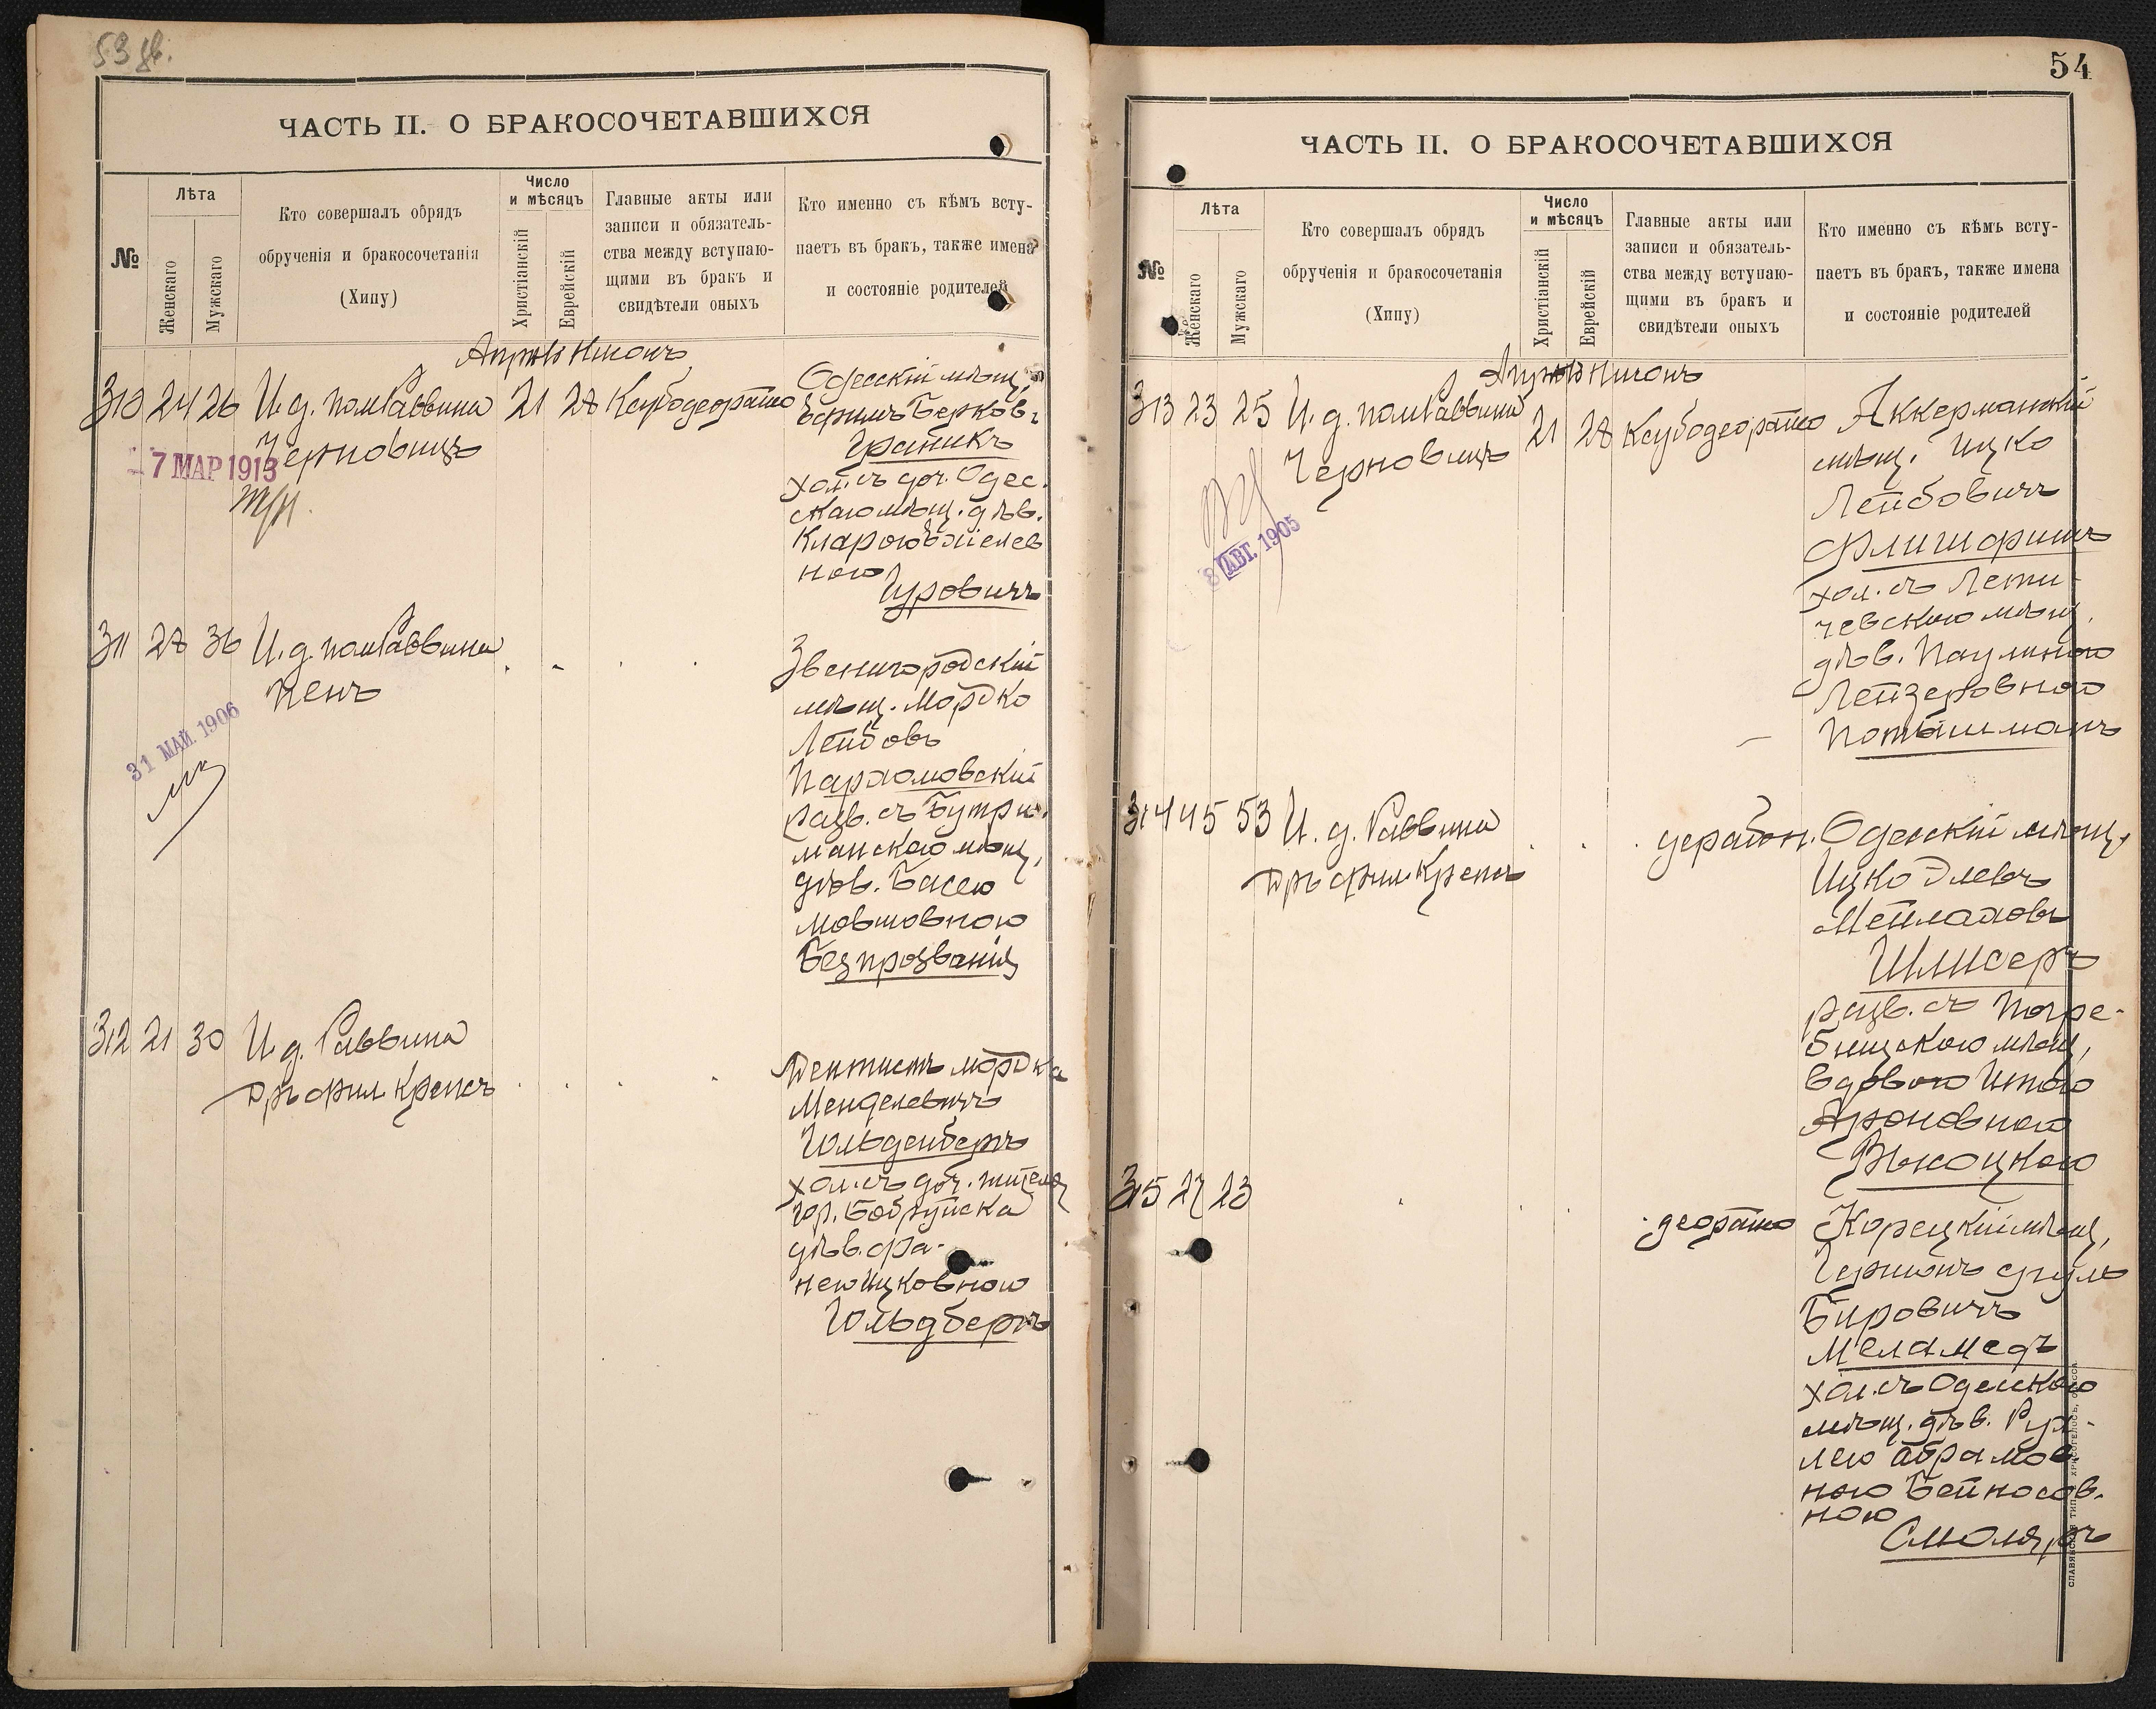 53 об.
ЧАСТЬ II. О БРАКОСОЧЕТАВШИХСЯ
№
Лѣта
Женскаго
Мужскаго
Кто совершалъ обрядъ
обрученія и бракосочетанія
(Хипу)
Число
и мѣсяцъ
Христіанскій
Еврейскій
Главные акты или
записи и обязатель-
ства между вступаю-
щими въ бракъ и
свидѣтели оныхъ
Кто именно съ кѣмъ всту-
паетъ въ бракъ, также имена
и состояніе родителей
Апрѣль Нисонъ
310 24 26 И. д. пом Раввина 21 28 Ксубодеорайсо
Черновицъ
7 МАР 1913
Одесскій мѣщ.
Ефимъ Берков.
Граникъ
хол. съ доч. Одес.
скаго мѣщ. дѣв.
Кларою Ейселев
ною
Гуровичъ
311 28 36 И. д. пом Раввина
Кенъ
31 МАЙ 1906
Звенигородскій
мѣщ. Мордко
Лейбовъ
Пархомовскій
разв. съ Бутри-
манскою мѣщ.
дѣв. Басею
Мовшовною
Безпрозванія
312 21 30 И. д. Раввина
Дръ фил Крепсъ
Дентистъ Мордка
Менделевичъ
Гольденбергъ
хол. съ доч. жителя
гор. Бобруйска
дѣв. Фа-
нею Ицковною
Гольдбергъ
54
ЧАСТЬ II. О БРАКОСОЧЕТАВШИХСЯ
№
Лѣта
Женскаго
Мужскаго
Кто совершалъ обрядъ
обрученія и бракосочетанія
(Хипу)
Число
и мѣсяцъ
Христіанскій
Еврейскій
Главные акты или
записи и обязатель-
ства между вступаю-
щими въ бракъ и
свидѣтели оныхъ
Кто именно съ кѣмъ всту-
паетъ въ бракъ, также имена
и состояніе родителей
Апрѣль Нисонъ
313 23 25 И. д. пом Раввина 21 28 Ксубодеорайсо
Черновицъ
8 АВГ. 1905
Аккерманскій
мѣщ. Ицко
Лейбовичъ
Флишфишъ
хол. съ Лети-
чевскою мѣщ.
дѣв. Паулиною
Лейзеровною
Потышманъ
314 45 53 И. д. Раввина
Дръ фил Крепсъ
дерабон.
Одесскій мѣщ.
Ицко Элевъ
Мейлахов
Шлисеръ
разв. съ Погре-
бищскою мѣщ.
вдовою Итою
Ароновною
Высоцкою
315 27 23
деорайсо
Корецкій мѣщ.
Гершонъ Сруль
Бировичъ
Меламедъ
хол. съ Одесскою
мѣщ. дѣв. Рух-
лею Абрамов
ною Бейносов-
ною
Смоляръ